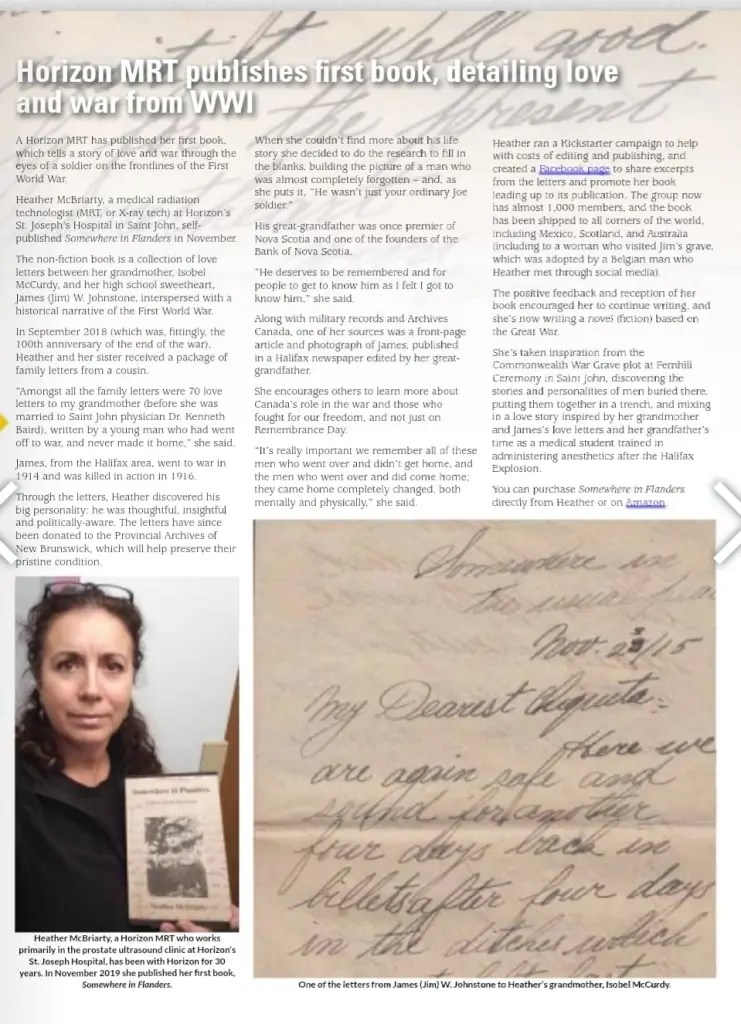 Horizon MRT publishes first book, detailing love
and war from WWI
A Horizon MRT has published her first book,
which tells a story of love and war through the
eyes of a soldier on the frontlines of the First
World War.
Heather McBriarty, a medical radiation
technologist (MRT, or X-ray tech) at Horizon's
St. Joseph's Hospital in Saint John, self-
published Somewhere in Flanders in November.
The non-fiction book is a collection of love
letters between her grandmother, Isobel
McCurdy, and her high school sweetheart,
James (Jim) W. Johnstone, interspersed with a
historical narrative of the First World War.
In September 2018 (which was, fittingly, the
100th anniversary of the end of the war),
Heather and her sister received a package of
family letters from a cousin.
"Amongst all the family letters were 70 love
letters to my grandmother (before she was
married to Saint John physician Dr. Kenneth
Baird), written by a young man who had went
off to war, and never made it home," she said.
James, from the Halifax area, went to war in
1914 and was killed in action in 1916.
Through the letters, Heather discovered his
big personality: he was thoughtful, insightful
and politically-aware. The letters have since
been donated to the Provincial Archives of
New Brunswick, which will help preserve their
pristine condition.
When she couldn't find more about his life
story she decided to do the research to fill in
the blanks, building the picture of a man who
was almost completely forgotten – and, as
she puts it, "He wasn't just your ordinary Joe
soldier."
His great-grandfather was once premier of
Nova Scotia and one of the founders of the
Bank of Nova Scotia.
"He deserves to be remembered and for
people to get to know him as I felt I got to
know him," she said.
Along with military records and Archives
Canada, one of her sources was a front-page
article and photograph of James, published
in a Halifax newspaper edited by her great-
grandfather.
She encourages others to learn more about
Canada's role in the war and those who
fought for our freedom, and not just on
Remembrance Day.
"It's really important we remember all of these
men who went over and didn't get home, and
the men who went over and did come home;
they came home completely changed, both
mentally and physically," she said.
Heather ran a Kickstarter campaign to help
with costs of editing and publishing, and
created a Facebook page to share excerpts
from the letters and promote her book
leading up to its publication. The group now
has almost 1,000 members, and the book
has been shipped to all corners of the world,
including Mexico, Scotland, and Australia
(including to a woman who visited Jim's grave,
which was adopted by a Belgian man who
Heather met through social media).
The positive feedback and reception of her
book encouraged her to continue writing, and
she's now writing a novel (fiction) based on
the Great War.
She's taken inspiration from the
Commonwealth War Grave plot at Fernhill
Ceremony in Saint John, discovering the
stories and personalities of men buried there,
putting them together in a trench, and mixing
in a love story inspired by her grandmother
and James's love letters and her grandfather's
time as a medical student trained in
administering anesthetics after the Halifax
Explosion.
You can purchase Somewhere in Flanders
directly from Heather or on Amazon.
Somewhere in Flanders
Heather McBriarty
Heather McBriarty, a Horizon MRT who works
primarily in the prostate ultrasound clinic at Horizon's
St. Joseph Hospital, has been with Horizon for 30
years. In November 2019 she published her first book,
Somewhere in Flanders.
Somewhere in
the usual
Nov. 2 /15
My Dearest Chiquita:
Here we
are again safe and
sound for another
four days back in
billets after four days
in the ditches which
One of the letters from James (Jim) W. Johnstone to Heather's grandmother, Isobel McCurdy.